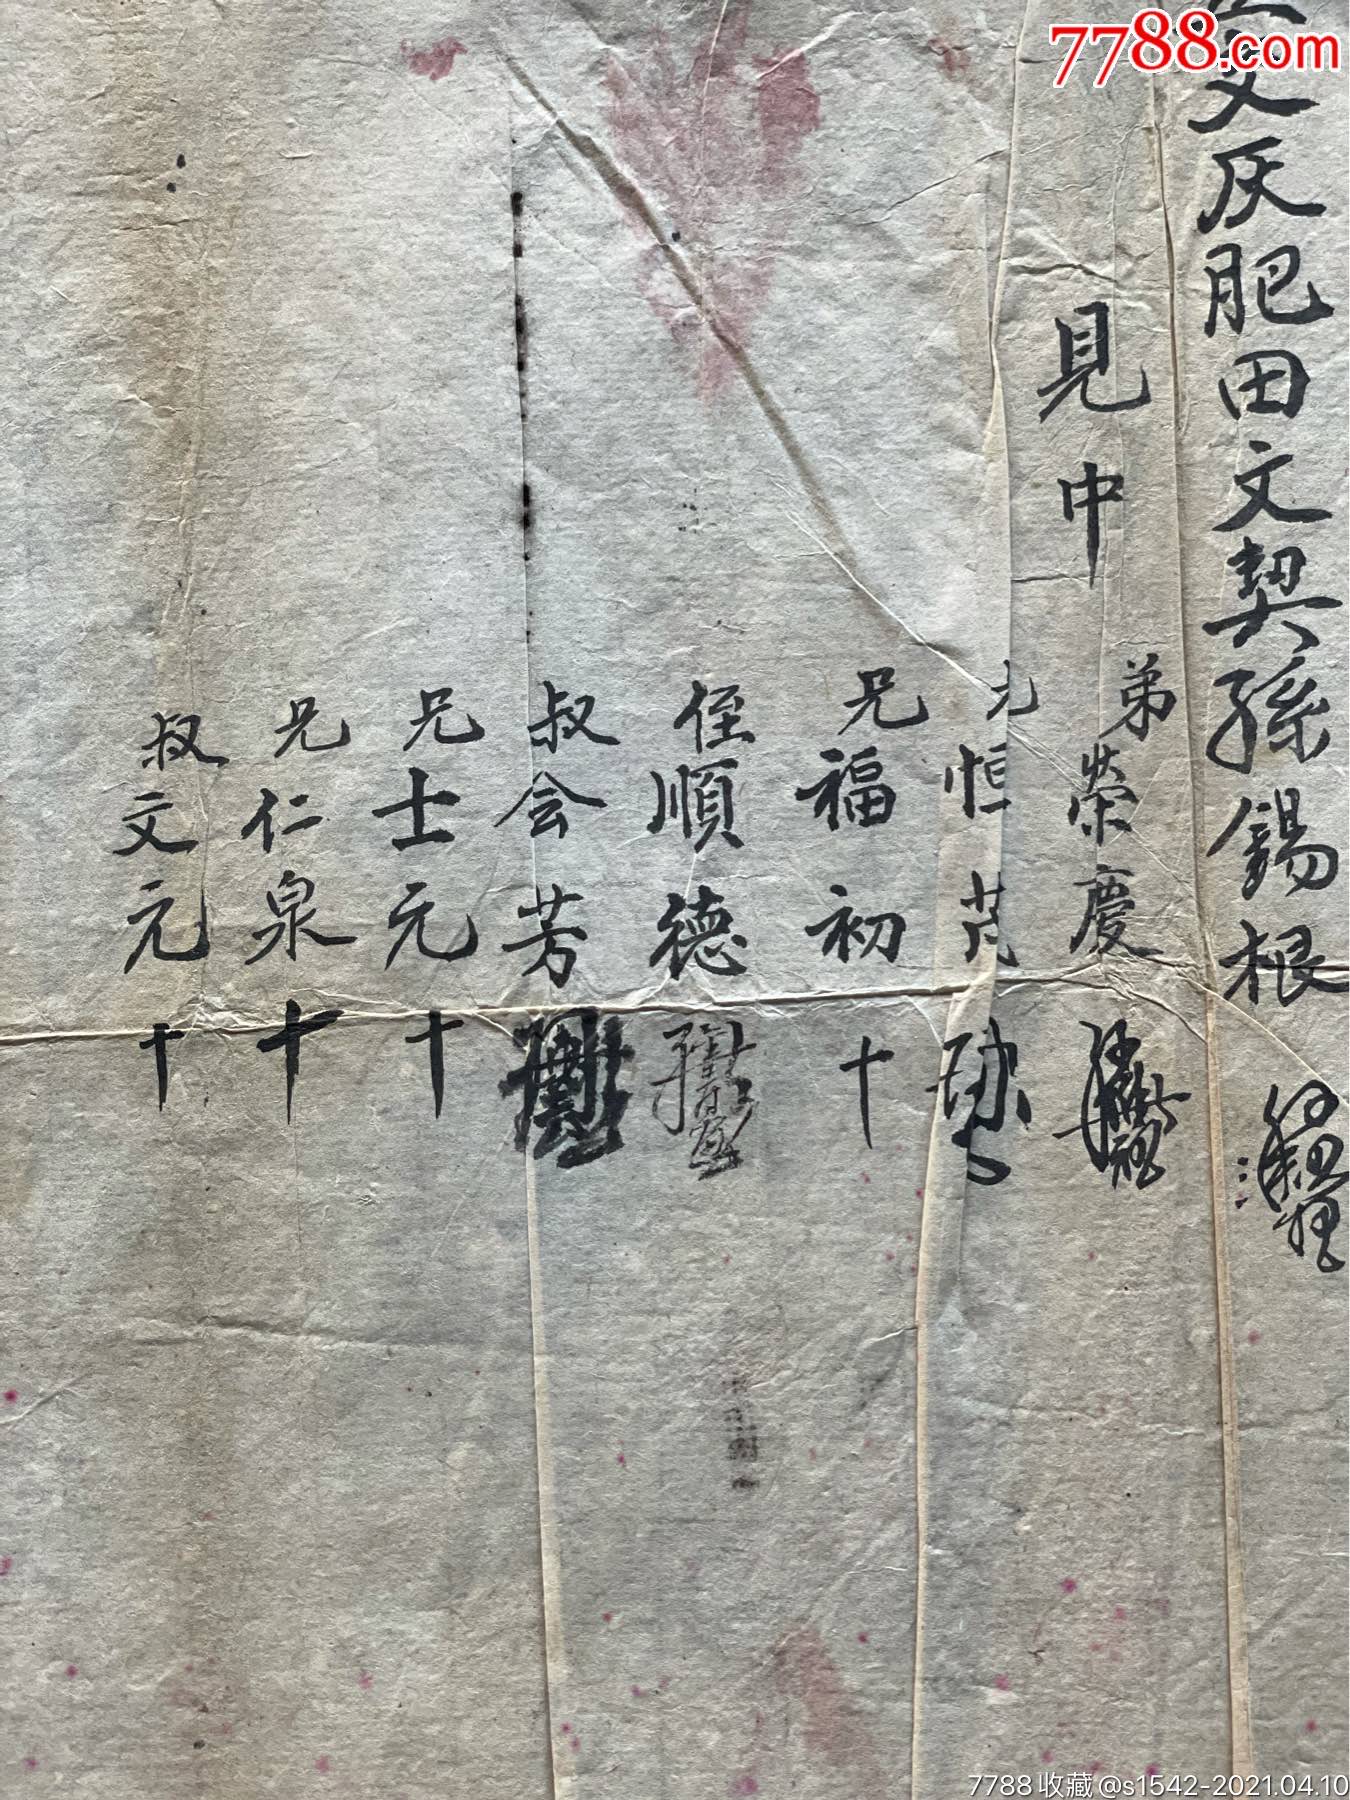 7788.com
文灰肥田文契孫錫根
見中
弟榮慶
兄恒茂
兄福初十
侄順德
叔会芳
兄士元十
兄仁泉十
叔文元十
7788收藏@s1542-2021.04.10